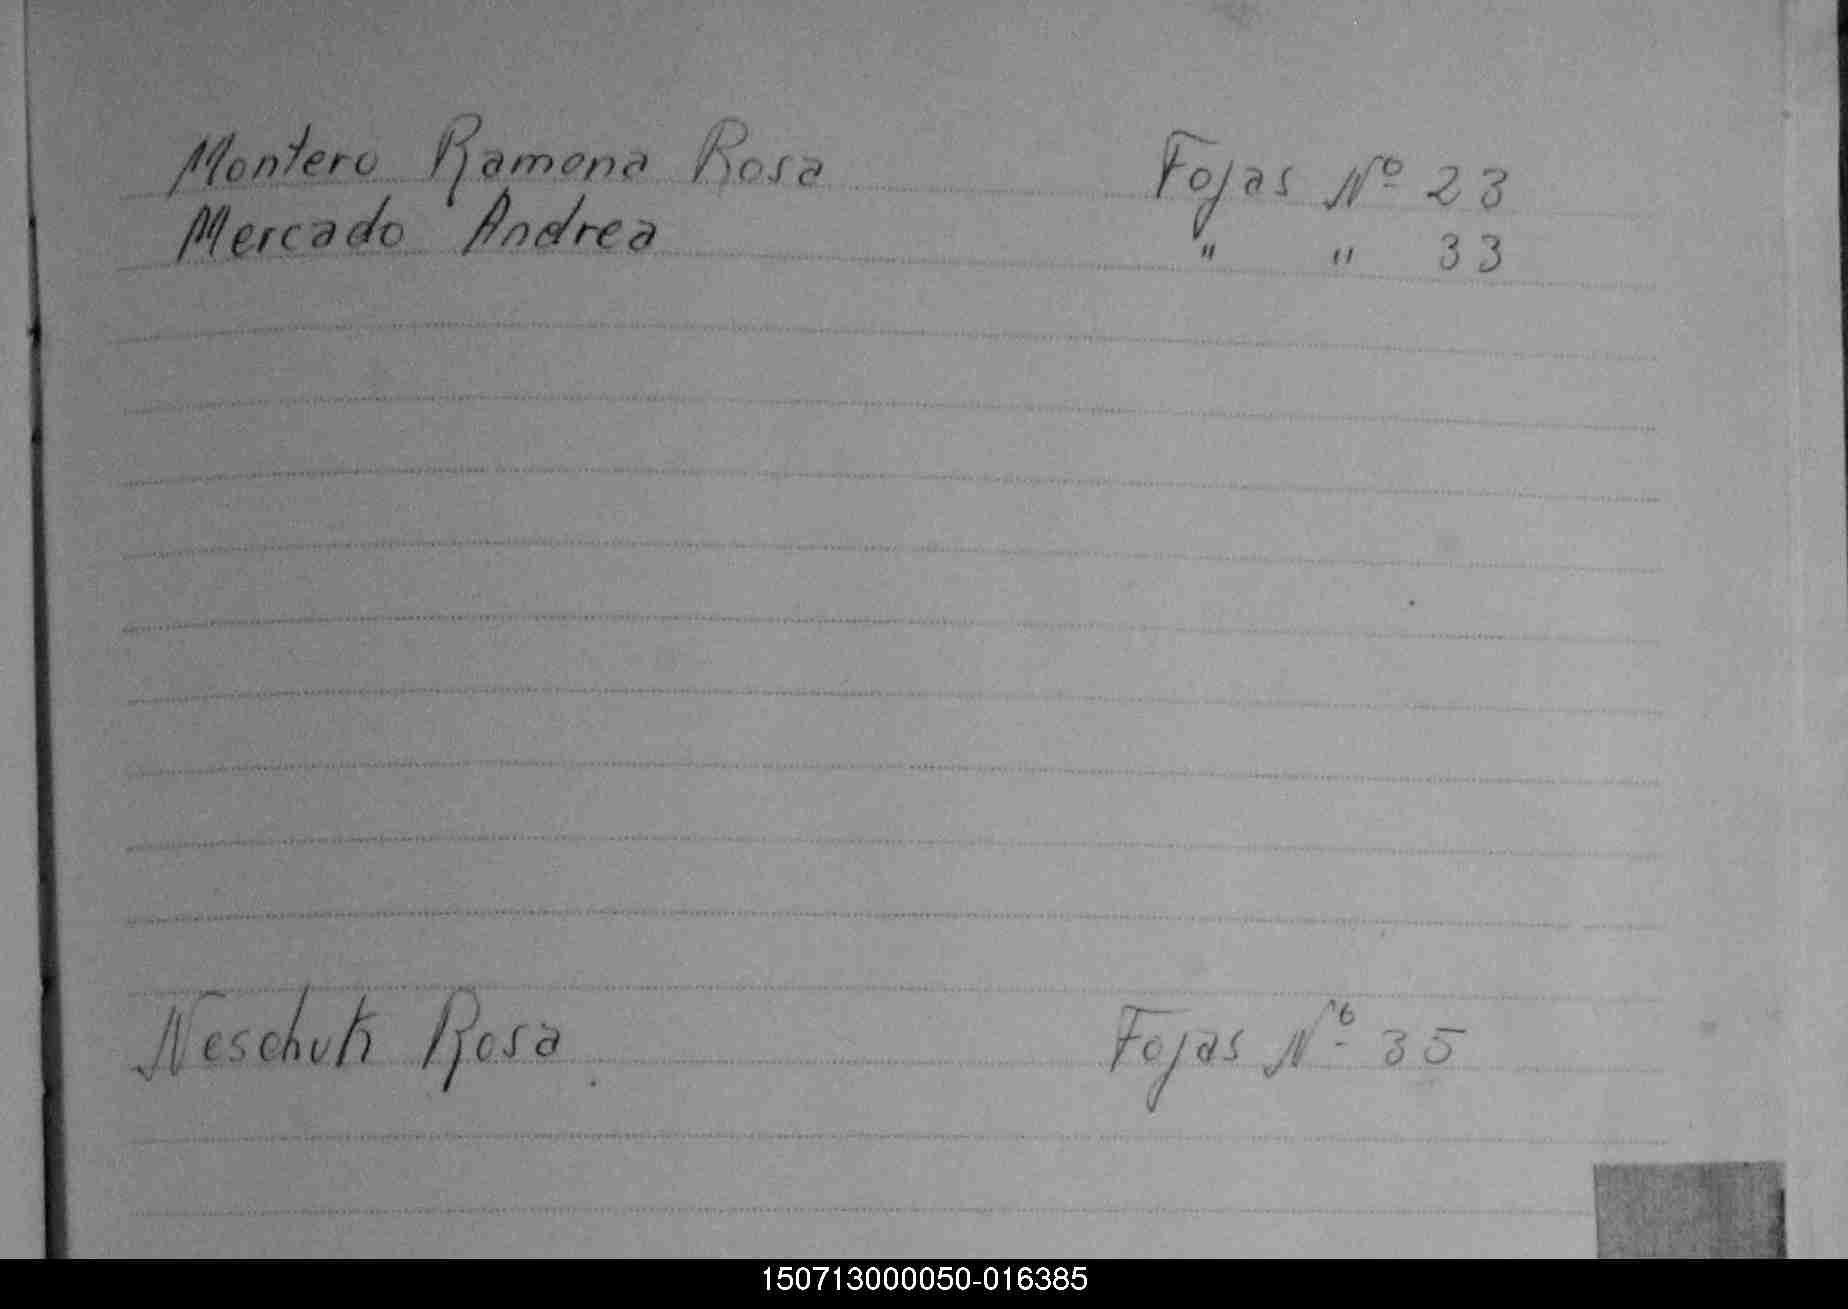 Montero Ramona Rosa Fojas Nº 23
Mercado Andrea " " 33
Neschuk Rosa Fojas Nº 35
150713000050-016385